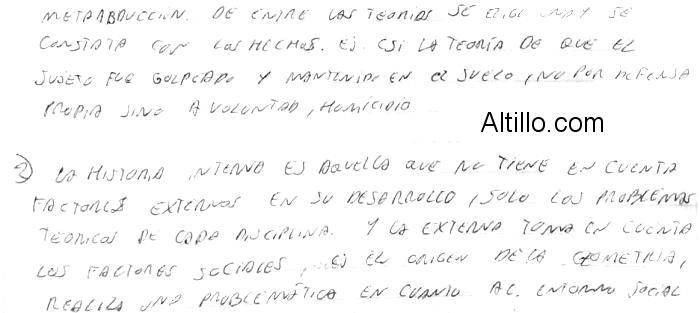 METAABDUCCION. DE ENTRE LAS TEORIAS SE ELIGE UNA Y SE
CONSTATA CON LOS HECHOS. EJ. CSI LA TEORÍA DE QUE EL
SUJETO FUE GOLPEADO Y MANTENIDO EN EL SUELO, NO POR DEFENSA
PROPIA SINO A VOLUNTAD, HOMICIDIO
Altillo.com
2) LA HISTORIA INTERNA ES AQUELLA QUE NO TIENE EN CUENTA
FACTORES EXTERNOS EN SU DESARROLLO, SOLO LOS PROBLEMAS
TEORICOS DE CADA DISCIPLINA. Y LA EXTERNA TOMA EN CUENTA
LOS FACTORES SOCIALES, EJ EL ORIGEN DE LA GEOMETRIA,
REALIZA UNA PROBLEMÁTICA EN CUANTO AL ENTORNO SOCIAL